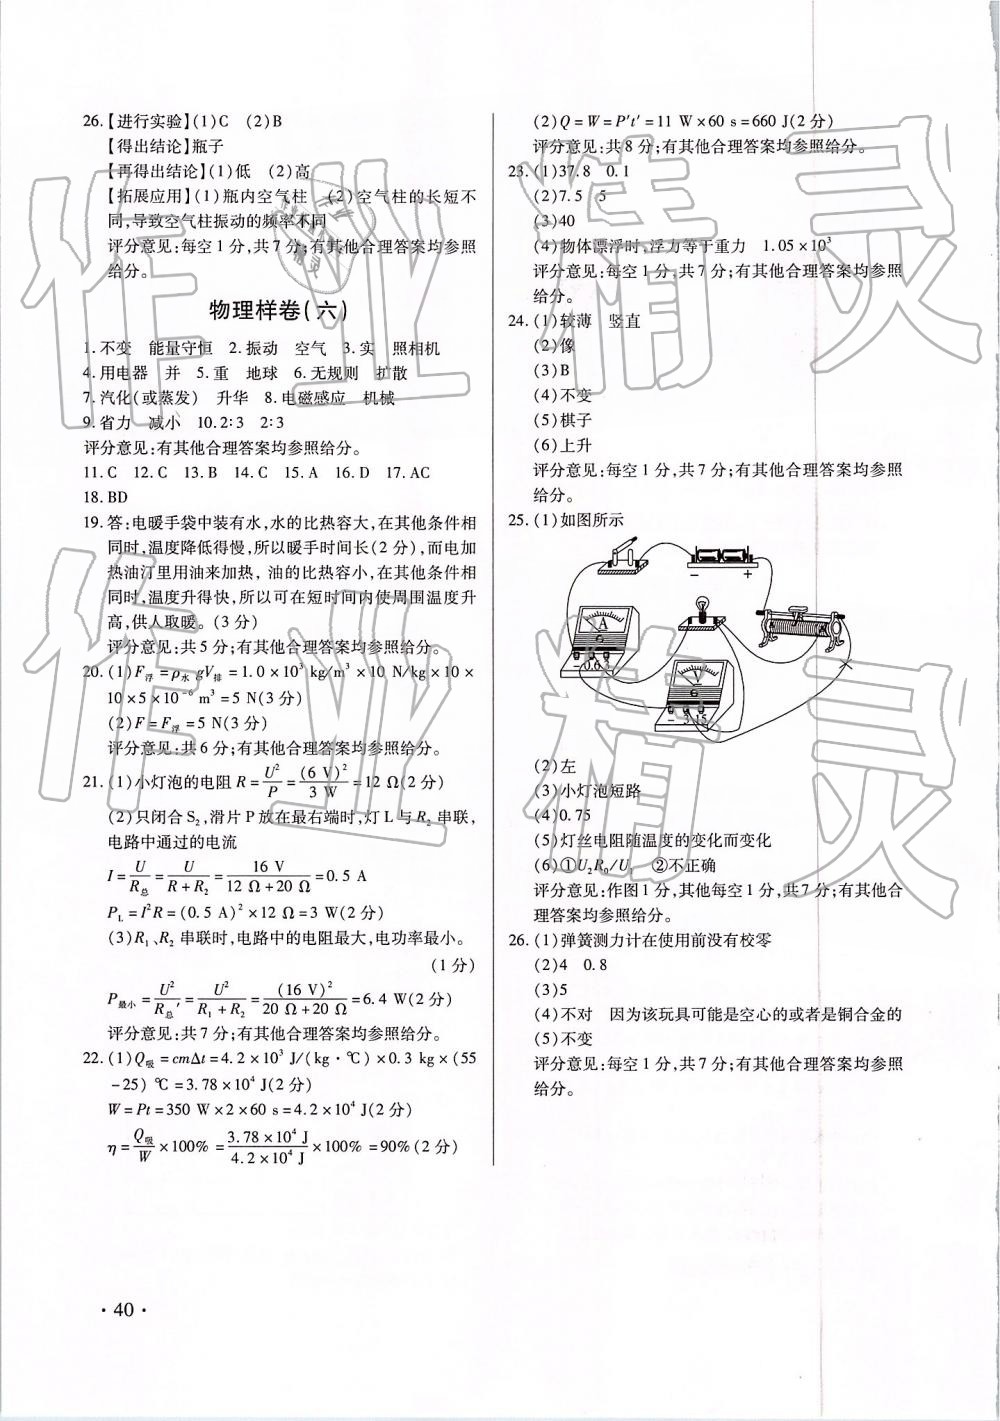 26.【进行实验】(1)C (2)B
【得出结论】瓶子
【再得出结论】(1)低 (2)高
【拓展应用】(1)瓶内空气柱 (2)空气柱的长短不
同,导致空气柱振动的频率不同
评分意见:每空1分,共7分;有其他合理答案均参照
给分。
物理样卷(六)
1.不变 能量守恒 2.振动 空气 3.实 照相机
4.用电器 并 5.重 地球 6.无规则 扩散
7.汽化(或蒸发) 升华 8.电磁感应 机械
9.省力 减小 10.2∶3 2∶3
评分意见:有其他合理答案均参照给分。
11.C 12.C 13.B 14.C 15.A 16.D 17.AC
18.BD
19.答:电暖手袋中装有水,水的比热容大,在其他条件相
同时,温度降低得慢,所以暖手时间长(2分),而电加
热油汀里用油来加热,油的比热容小,在其他条件相
同时,温度升得快,所以可在短时间内使周围温度升
高,供人取暖。(3分)
评分意见:共5分;有其他合理答案均参照给分。
20.(1)F浮=ρ水gV排=1.0×10³ kg/m³×10 N/kg×10×
10×5×10⁻⁶ m³=5 N(3分)
(2)F=F浮=5 N(3分)
评分意见:共6分;有其他合理答案均参照给分。
21.(1)小灯泡的电阻R=U²/P=(6 V)²/3 W=12 Ω(2分)
(2)只闭合S₂,滑片P放在最右端时,灯L与R₂串联,
电路中通过的电流
I=U/R总=U/(R+R₂)=16 V/(12 Ω+20 Ω)=0.5 A
P_L=I²R=(0.5 A)²×12 Ω=3 W(2分)
(3)R₁、R₂串联时,电路中的电阻最大,电功率最小。
(1分)
P最小=U²/R总′=U²/(R₁+R₂)=(16 V)²/(20 Ω+20 Ω)=6.4 W(2分)
评分意见:共7分;有其他合理答案均参照给分。
22.(1)Q吸=cmΔt=4.2×10³ J/(kg·℃)×0.3 kg×(55
-25) ℃=3.78×10⁴ J(2分)
W=Pt=350 W×2×60 s=4.2×10⁴ J(2分)
η=Q吸/W×100%=3.78×10⁴ J/4.2×10⁴ J×100%=90%(2分)
·40·
(2)Q=W=P′t′=11 W×60 s=660 J(2分)
评分意见:共8分;有其他合理答案均参照给分。
23.(1)37.8 0.1
(2)7.5 5
(3)40
(4)物体漂浮时,浮力等于重力 1.05×10³
评分意见:每空1分,共7分;有其他合理答案均参照
给分。
24.(1)较薄 竖直
(2)像
(3)B
(4)不变
(5)棋子
(6)上升
评分意见:每空1分,共7分;有其他合理答案均参照
给分。
25.(1)如图所示
- +
A
- 0.6 3
V
- 3 15
(2)左
(3)小灯泡短路
(4)0.75
(5)灯丝电阻随温度的变化而变化
(6)①U₂R₀/U₁ ②不正确
评分意见:作图1分,其他每空1分,共7分;有其他合
理答案均参照给分。
26.(1)弹簧测力计在使用前没有校零
(2)4 0.8
(3)5
(4)不对 因为该玩具可能是空心的或者是铜合金的
(5)不变
评分意见:每空1分,共7分;有其他合理答案均参照
给分。
作业精灵
作业精灵